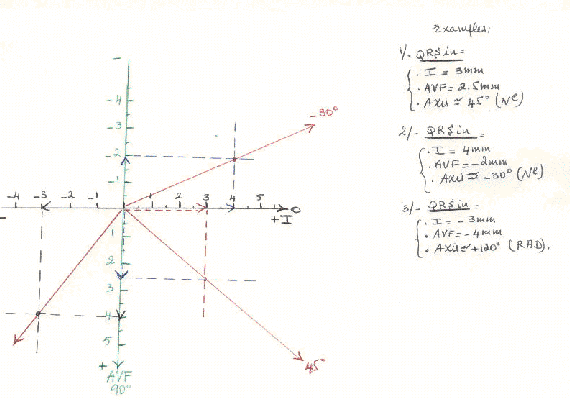 Examples:
1/- QRS in =
. I = 3mm
. AVF = 2.5mm
. Axis ≃ 45° (Nl)
2/- QRS in =
. I = 4mm
. AVF = -2mm
. Axis ≃ -30° (Nl)
3/- QRS in =
. I = -3mm
. AVF = -4mm
. Axis ≃ +120° (RAD).
-4
-3
-30°
-2
-1
-4 -3 -2 -1 1 2 3 4 5 0
+I
1
2
3
4
5
+
AVF
90°
45°